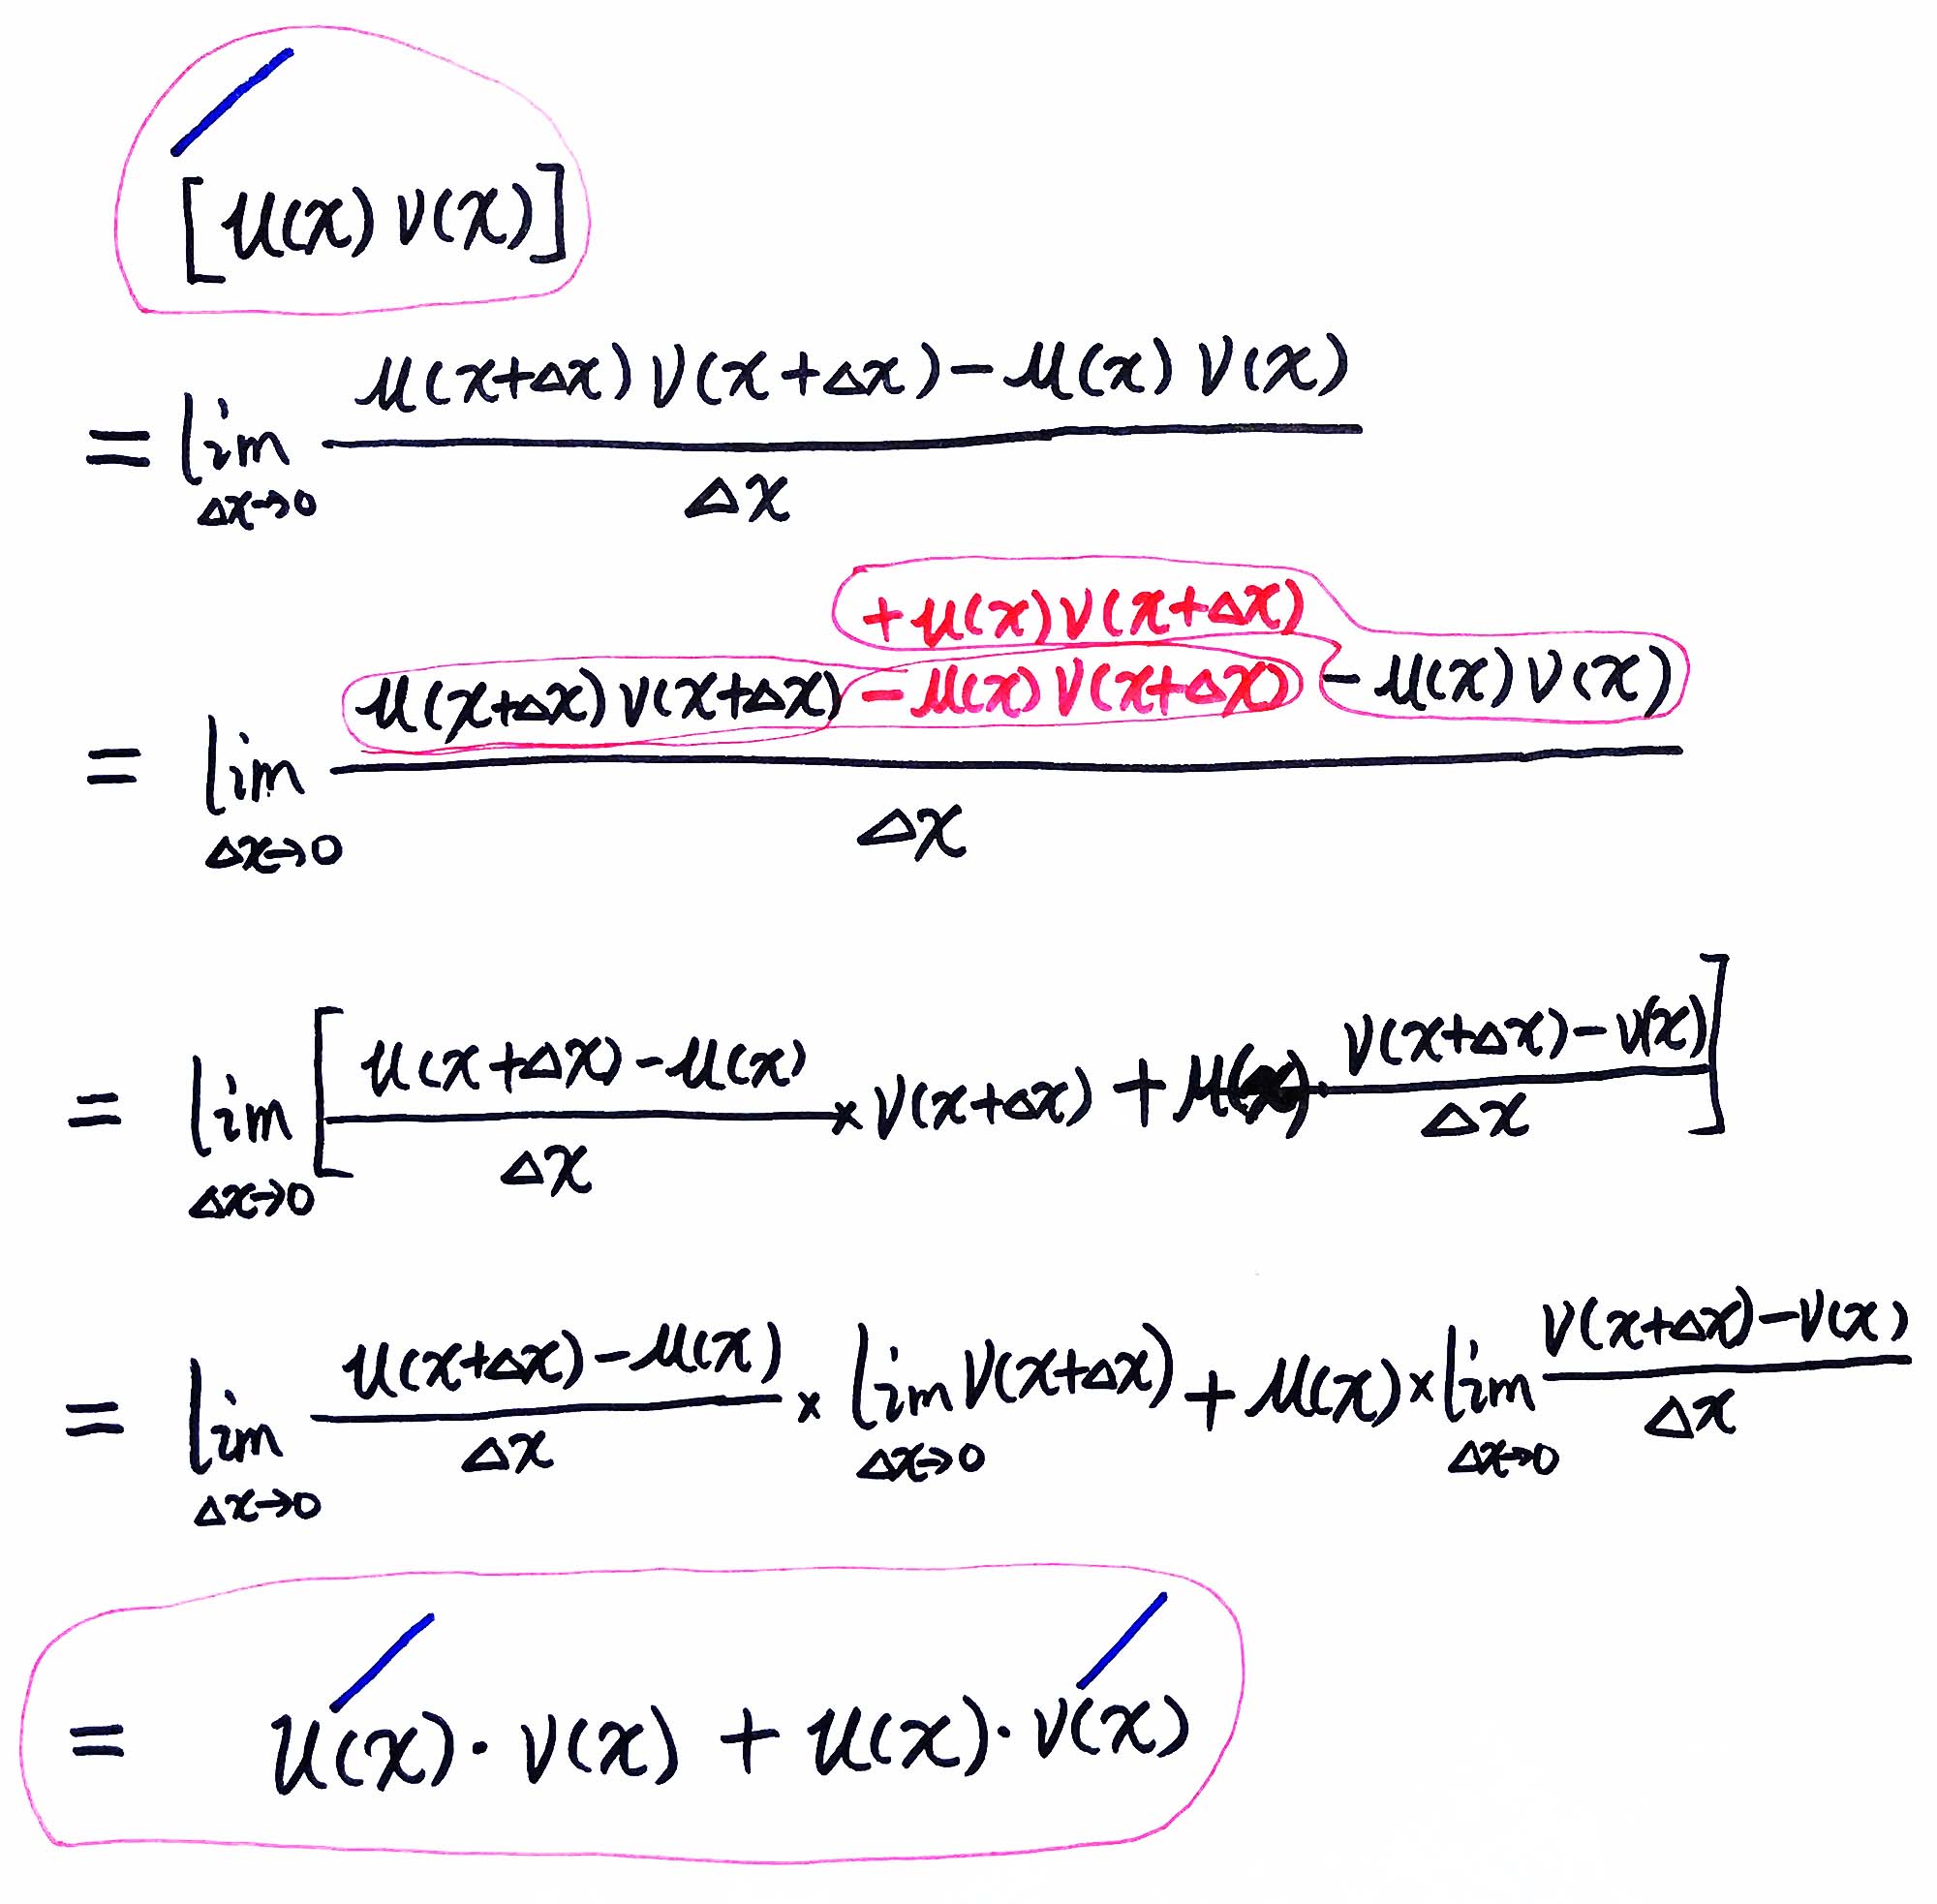 [u(x) v(x)]
= lim Δx→0 u(x+Δx) v(x+Δx) − u(x) v(x) / Δx
+ u(x) v(x+Δx)
= lim Δx→0 u(x+Δx) v(x+Δx) − u(x) v(x+Δx) − u(x) v(x) / Δx
= lim Δx→0 [ u(x+Δx) − u(x) / Δx × v(x+Δx) + u(x) · v(x+Δx) − v(x) / Δx ]
= lim Δx→0 u(x+Δx) − u(x) / Δx × lim Δx→0 v(x+Δx) + u(x) × lim Δx→0 v(x+Δx) − v(x) / Δx
= u′(x) · v(x) + u(x) · v′(x)